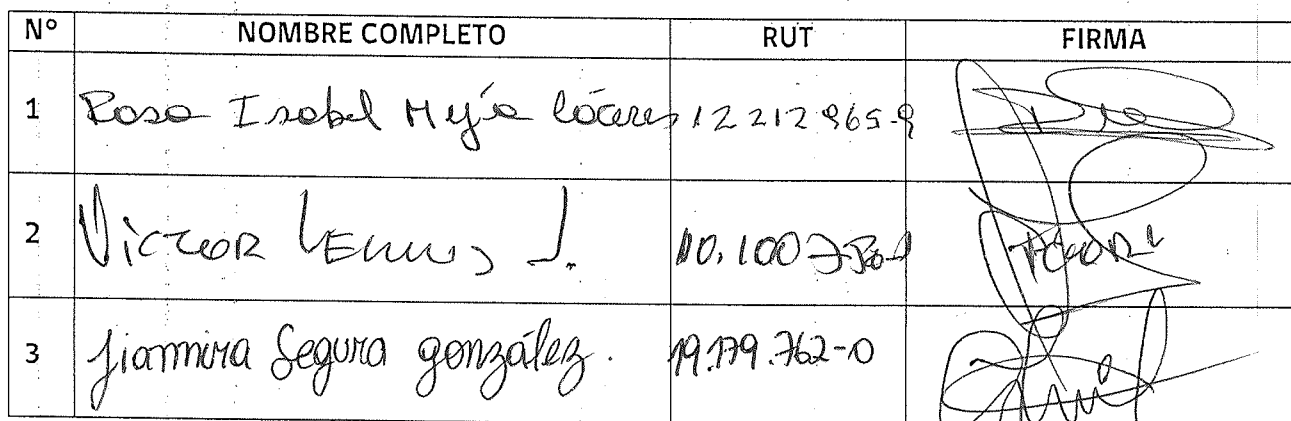 N° NOMBRE COMPLETO RUT FIRMA
1 Rosa Isabel Mejía Cáceres 12212965-9
2 Victor Lemus J. 10.100
3 Jianmira Segura González. 19.179.762-0